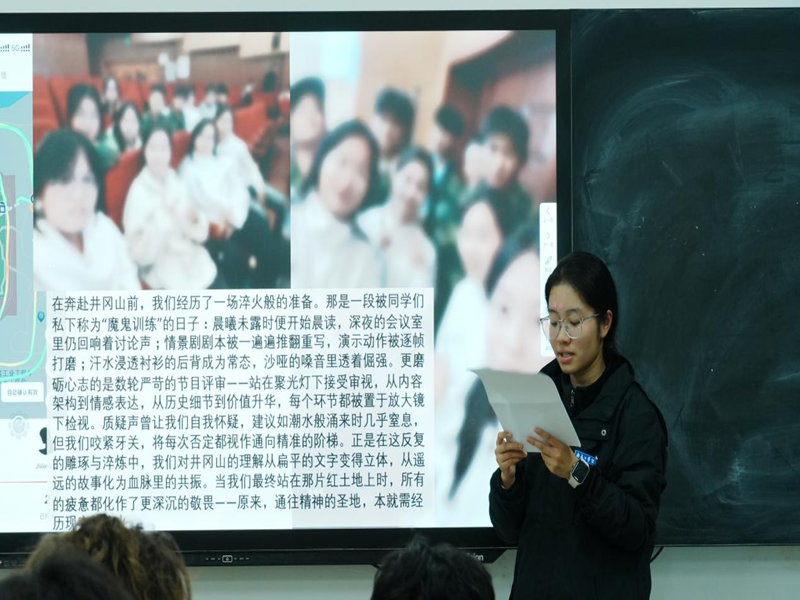 5G
在奔赴井冈山前，我们经历了一场淬火般的准备。那是一段被同学们
私下称为“魔鬼训练”的日子：晨曦未露时便开始晨读，深夜的会议室
里仍回响着讨论声；情景剧剧本被一遍遍推翻重写，演示动作被逐帧
打磨；汗水浸透衬衫的后背成为常态，沙哑的嗓音里透着倔强。更磨
砺心志的是数轮严苛的节目评审——站在聚光灯下接受审视，从内容
架构到情感表达，从历史细节到价值升华，每个环节都被置于放大镜
下检视。质疑声曾让我们自我怀疑，建议如潮水般涌来时几乎窒息，
但我们咬紧牙关，将每次否定都视作通向精准的阶梯。正是在这反复
的雕琢与淬炼中，我们对井冈山的理解从扁平的文字变得立体，从遥
远的故事化为血脉里的共振。当我们最终站在那片红土地上时，所有
的疲惫都化作了更深沉的敬畏——原来，通往精神的圣地，本就需经
历现